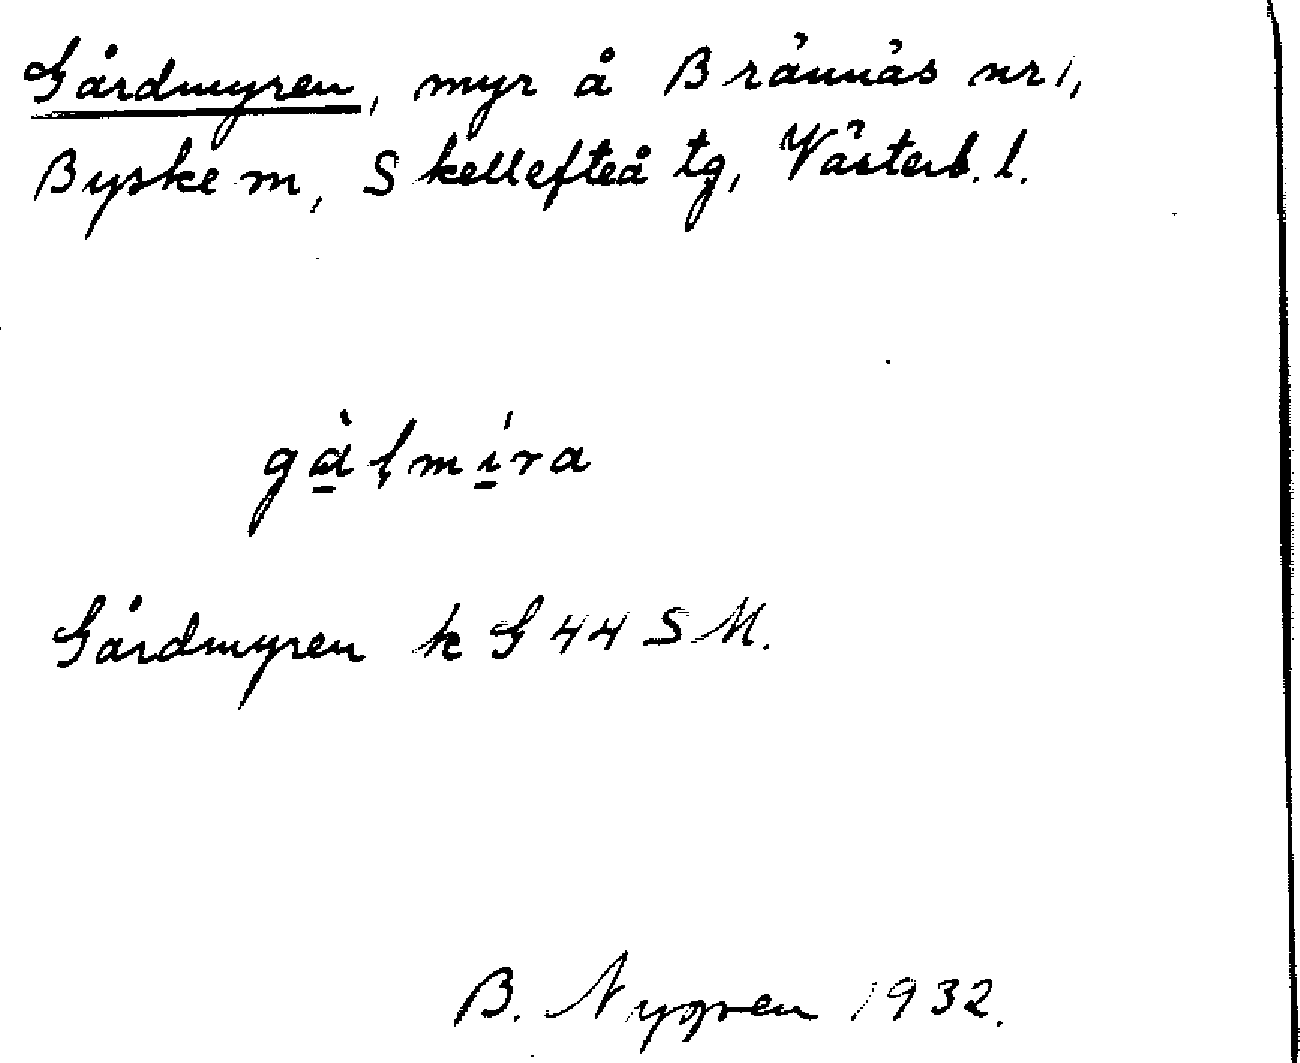 Gårdmyren, myr å Brännäs nr 1,
Byske m, Skellefteå tg, Västerb. l.
gà̱ḷmí̱ra
Gårdmyren k G 44 SM.
B. Nygren 1932.